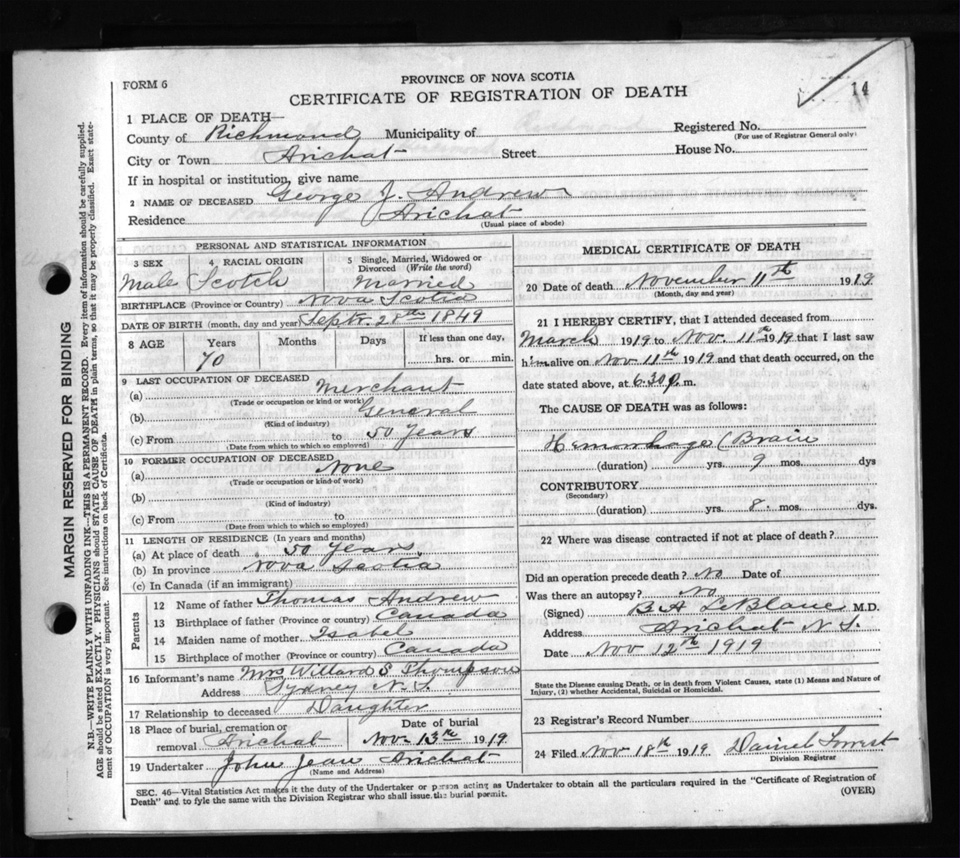 14
FORM 6
PROVINCE OF NOVA SCOTIA
CERTIFICATE OF REGISTRATION OF DEATH
1 PLACE OF DEATH—
County of Richmond Municipality of Registered No.
(For use of Registrar General only)
City or Town Arichat Street House No.
If in hospital or institution, give name
2 NAME OF DECEASED George J. Andrew
Residence Arichat
(Usual place of abode)
PERSONAL AND STATISTICAL INFORMATION
3 SEX 4 RACIAL ORIGIN 5 Single, Married, Widowed or Divorced (Write the word)
Male Scotch Married
BIRTHPLACE (Province or Country) Nova Scotia
DATE OF BIRTH (month, day and year) Septr. 28th 1849
8 AGE Years Months Days If less than one day,
70 hrs. or min.
9 LAST OCCUPATION OF DECEASED
(a) Merchant
(Trade or occupation or kind or work)
(b) General
(Kind of industry)
(c) From to 50 Years
(Date from which to which so employed)
10 FORMER OCCUPATION OF DECEASED
(a) None
(Trade or occupation or kind of work)
(b)
(Kind of industry)
(c) From to
(Date from which to which so employed)
11 LENGTH OF RESIDENCE (In years and months)
(a) At place of death 50 Years
(b) In province Nova Scotia
(c) In Canada (if an immigrant)
Parents
12 Name of father Thomas Andrew
13 Birthplace of father (Province or country) Canada
14 Maiden name of mother Isabel
15 Birthplace of mother (Province or Country) Canada
16 Informant's name Mrs Willard S Thompson
Address Sydney N.S.
17 Relationship to deceased Daughter
18 Place of burial, cremation or removal Arichat Date of burial Nov 13th 1919
19 Undertaker John Jean Arichat
(Name and Address)
MEDICAL CERTIFICATE OF DEATH
20 Date of death November 11th 1919
(Month, day and year)
21 I HEREBY CERTIFY, that I attended deceased from
March 1919 to Nov. 11th 1919 that I last saw
him alive on Nov 11th 1919 and that death occurred, on the
date stated above, at 6.30 p. m.
The CAUSE OF DEATH was as follows:
Hemorrhage (Brain
(duration) yrs. 9 mos. dys
CONTRIBUTORY
(Secondary)
(duration) yrs. 8. mos. dys.
22 Where was disease contracted if not at place of death?
Did an operation precede death? No Date of
Was there an autopsy? No
(Signed) B A LeBlanc M.D.
Address Arichat N.S.
Date Nov 12th 1919
State the Disease causing Death, or in death from Violent Causes, state (1) Means and Nature of
Injury, (2) whether Accidental, Suicidal or Homicidal.
23 Registrar's Record Number
24 Filed Nov 18th 1919 Daniel Forrest
Division Registrar
SEC. 46—Vital Statistics Act makes it the duty of the Undertaker or person acting as Undertaker to obtain all the particulars required in the "Certificate of Registration of
Death" and to fyle the same with the Division Registrar who shall issue the burial permit. (OVER)
MARGIN RESERVED FOR BINDING
N.B.—WRITE PLAINLY WITH UNFADING INK—THIS IS A PERMANENT RECORD. Every item of information should be carefully supplied.
AGE should be stated EXACTLY. PHYSICIANS should STATE CAUSE OF DEATH in plain terms, so that it may be properly classified. Exact state-
ment of OCCUPATION is very important. See instructions on back of Certificate.